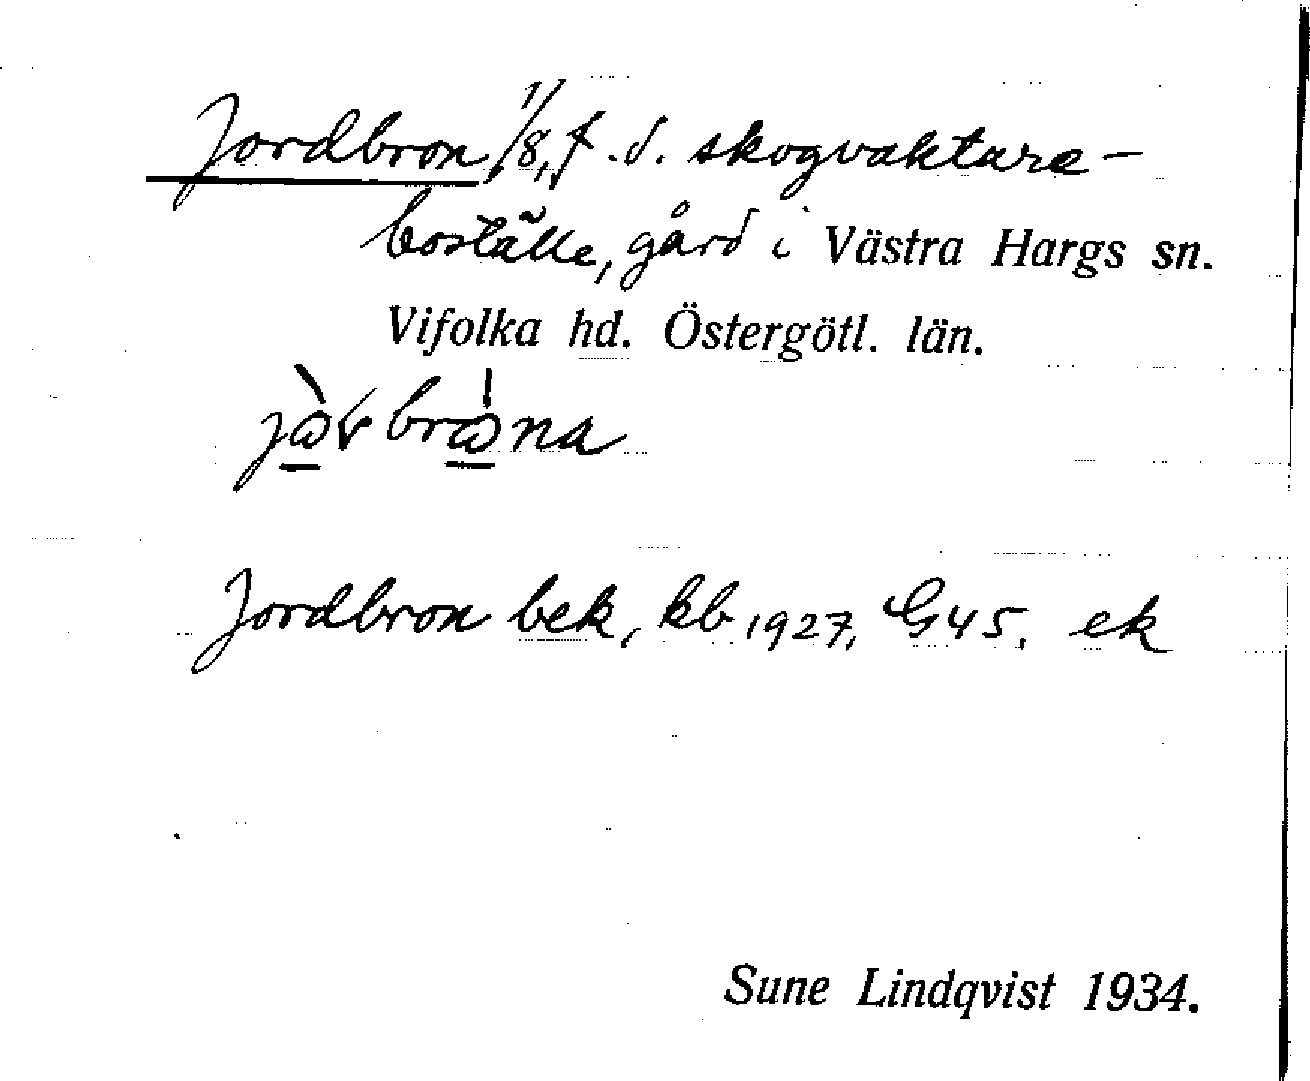 Jordbron 1/8, f.d. skogvaktare-
boställe, gård i Västra Hargs sn.
Vifolka hd. Östergötl. län.
Jordbron bek, kb 1927, G45. ek
Sune Lindqvist 1934.